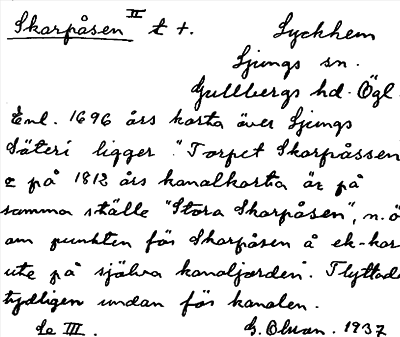 Skarpåsen II t †. Lyckhem
Ljungs sn.
Gullbergs hd. Ögl.
Enl. 1696 års karta över Ljungs
Säteri ligger "Torpet Skarpåssen"
på 1812 års kanalkarta är på
samma ställe "Stora Skarpåsen", n.ö.
om punkten för Skarpåsen å ek-kar
ute på själva kanaljorden. Flyttade
tydligen undan för kanalen.
Se III. G. Olson. 1937